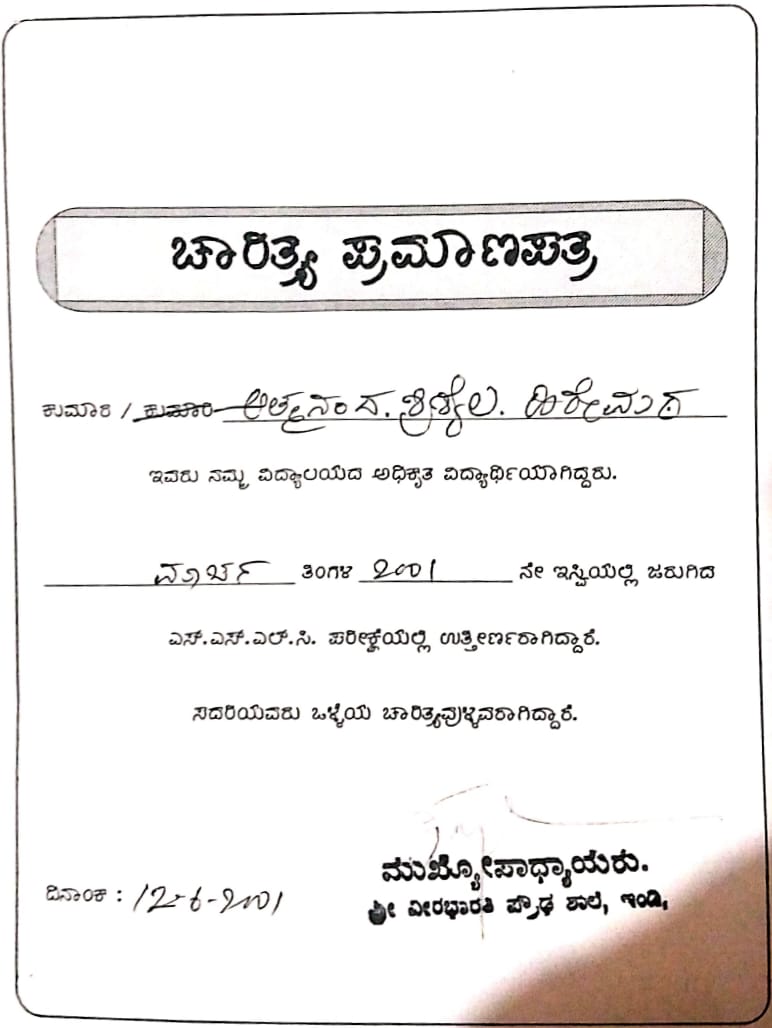 ಚಾರಿತ್ರ್ಯ ಪ್ರಮಾಣಪತ್ರ
ಕುಮಾರ / ಕುಮಾರಿ ಆತ್ಮಾನಂದ. ಶ್ರೀಶೈಲ. ಹಿರೇಮಠ
ಇವರು ನಮ್ಮ ವಿದ್ಯಾಲಯದ ಅಧಿಕೃತ ವಿದ್ಯಾರ್ಥಿಯಾಗಿದ್ದರು.
ಮಾರ್ಚ ತಿಂಗಳ 2001 ನೇ ಇಸ್ವಿಯಲ್ಲಿ ಜರುಗಿದ
ಎಸ್.ಎಸ್.ಎಲ್.ಸಿ. ಪರೀಕ್ಷೆಯಲ್ಲಿ ಉತ್ತೀರ್ಣರಾಗಿದ್ದಾರೆ.
ಸದರಿಯವರು ಒಳ್ಳೆಯ ಚಾರಿತ್ರ್ಯವುಳ್ಳವರಾಗಿದ್ದಾರೆ.
ಮುಖ್ಯೋಪಾಧ್ಯಾಯರು.
ದಿನಾಂಕ : 12-6-2001
ಶ್ರೀ ವೀರಭಾರತಿ ಪ್ರೌಢ ಶಾಲೆ, ಇಂಡಿ,